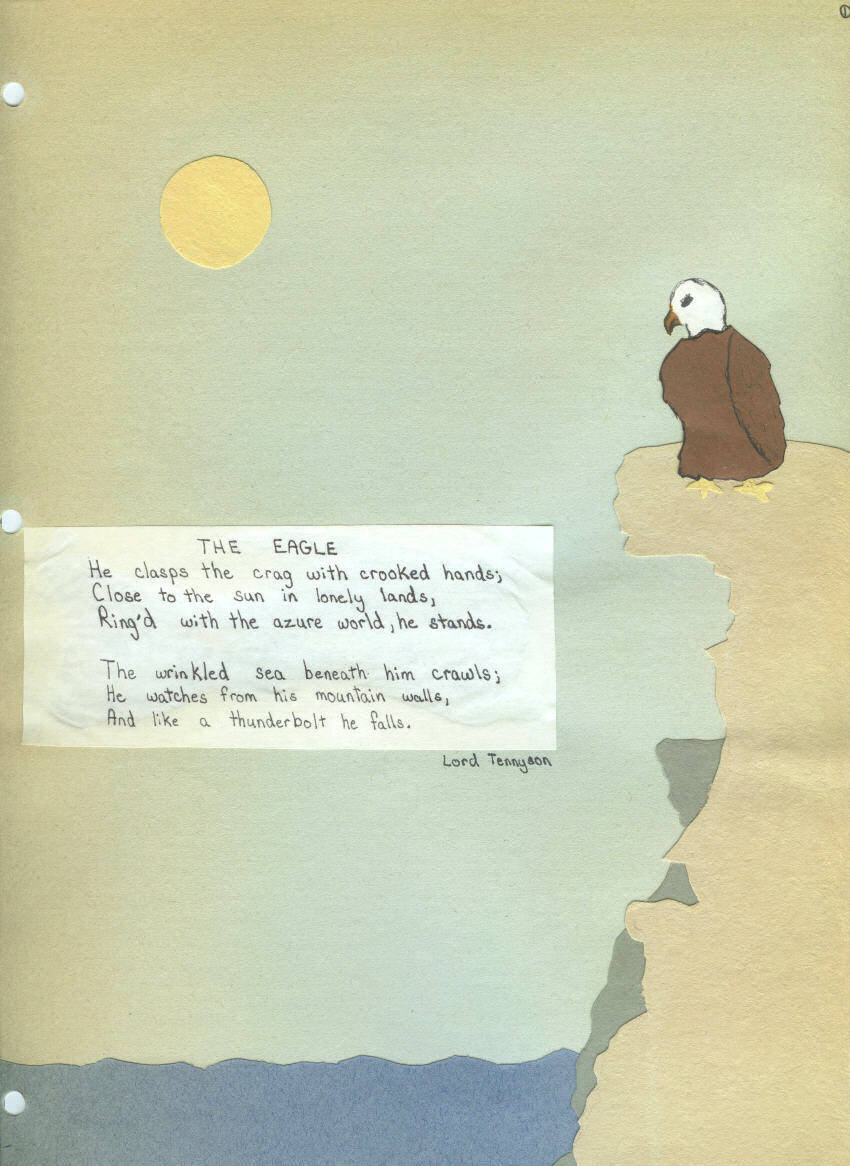 ①
THE EAGLE
He clasps the crag with crooked hands;
Close to the sun in lonely lands,
Ring'd with the azure world, he stands.
The wrinkled sea beneath him crawls;
He watches from his mountain walls,
And like a thunderbolt he falls.
Lord Tennyson